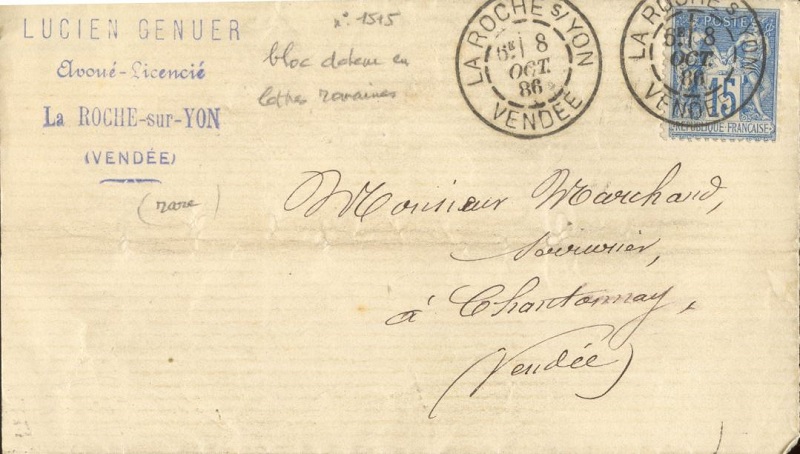 LUCIEN GENUER
Avoué-Licencié
La ROCHE-sur-YON
(VENDÉE)
n° 1515
bloc dateur en
lettres romaines
(rare)
LA ROCHE S/YON
6E 8
OCT.
86
VENDÉE
LA ROCHE S/YON
6E 8
OCT.
86
VENDÉE
POSTES
15
REPUBLIQUE FRANÇAISE
Monsieur Marchand,
Serrurier,
à Chantonnay,
(Vendée)